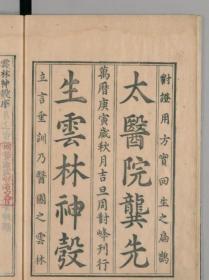 對證用方實回生之扁鵲
太醫院龔先
萬曆庚寅歲秋月吉旦周對峰刊行
生雲林神彀
立言垂訓乃醫國之雲林
雲林神彀序